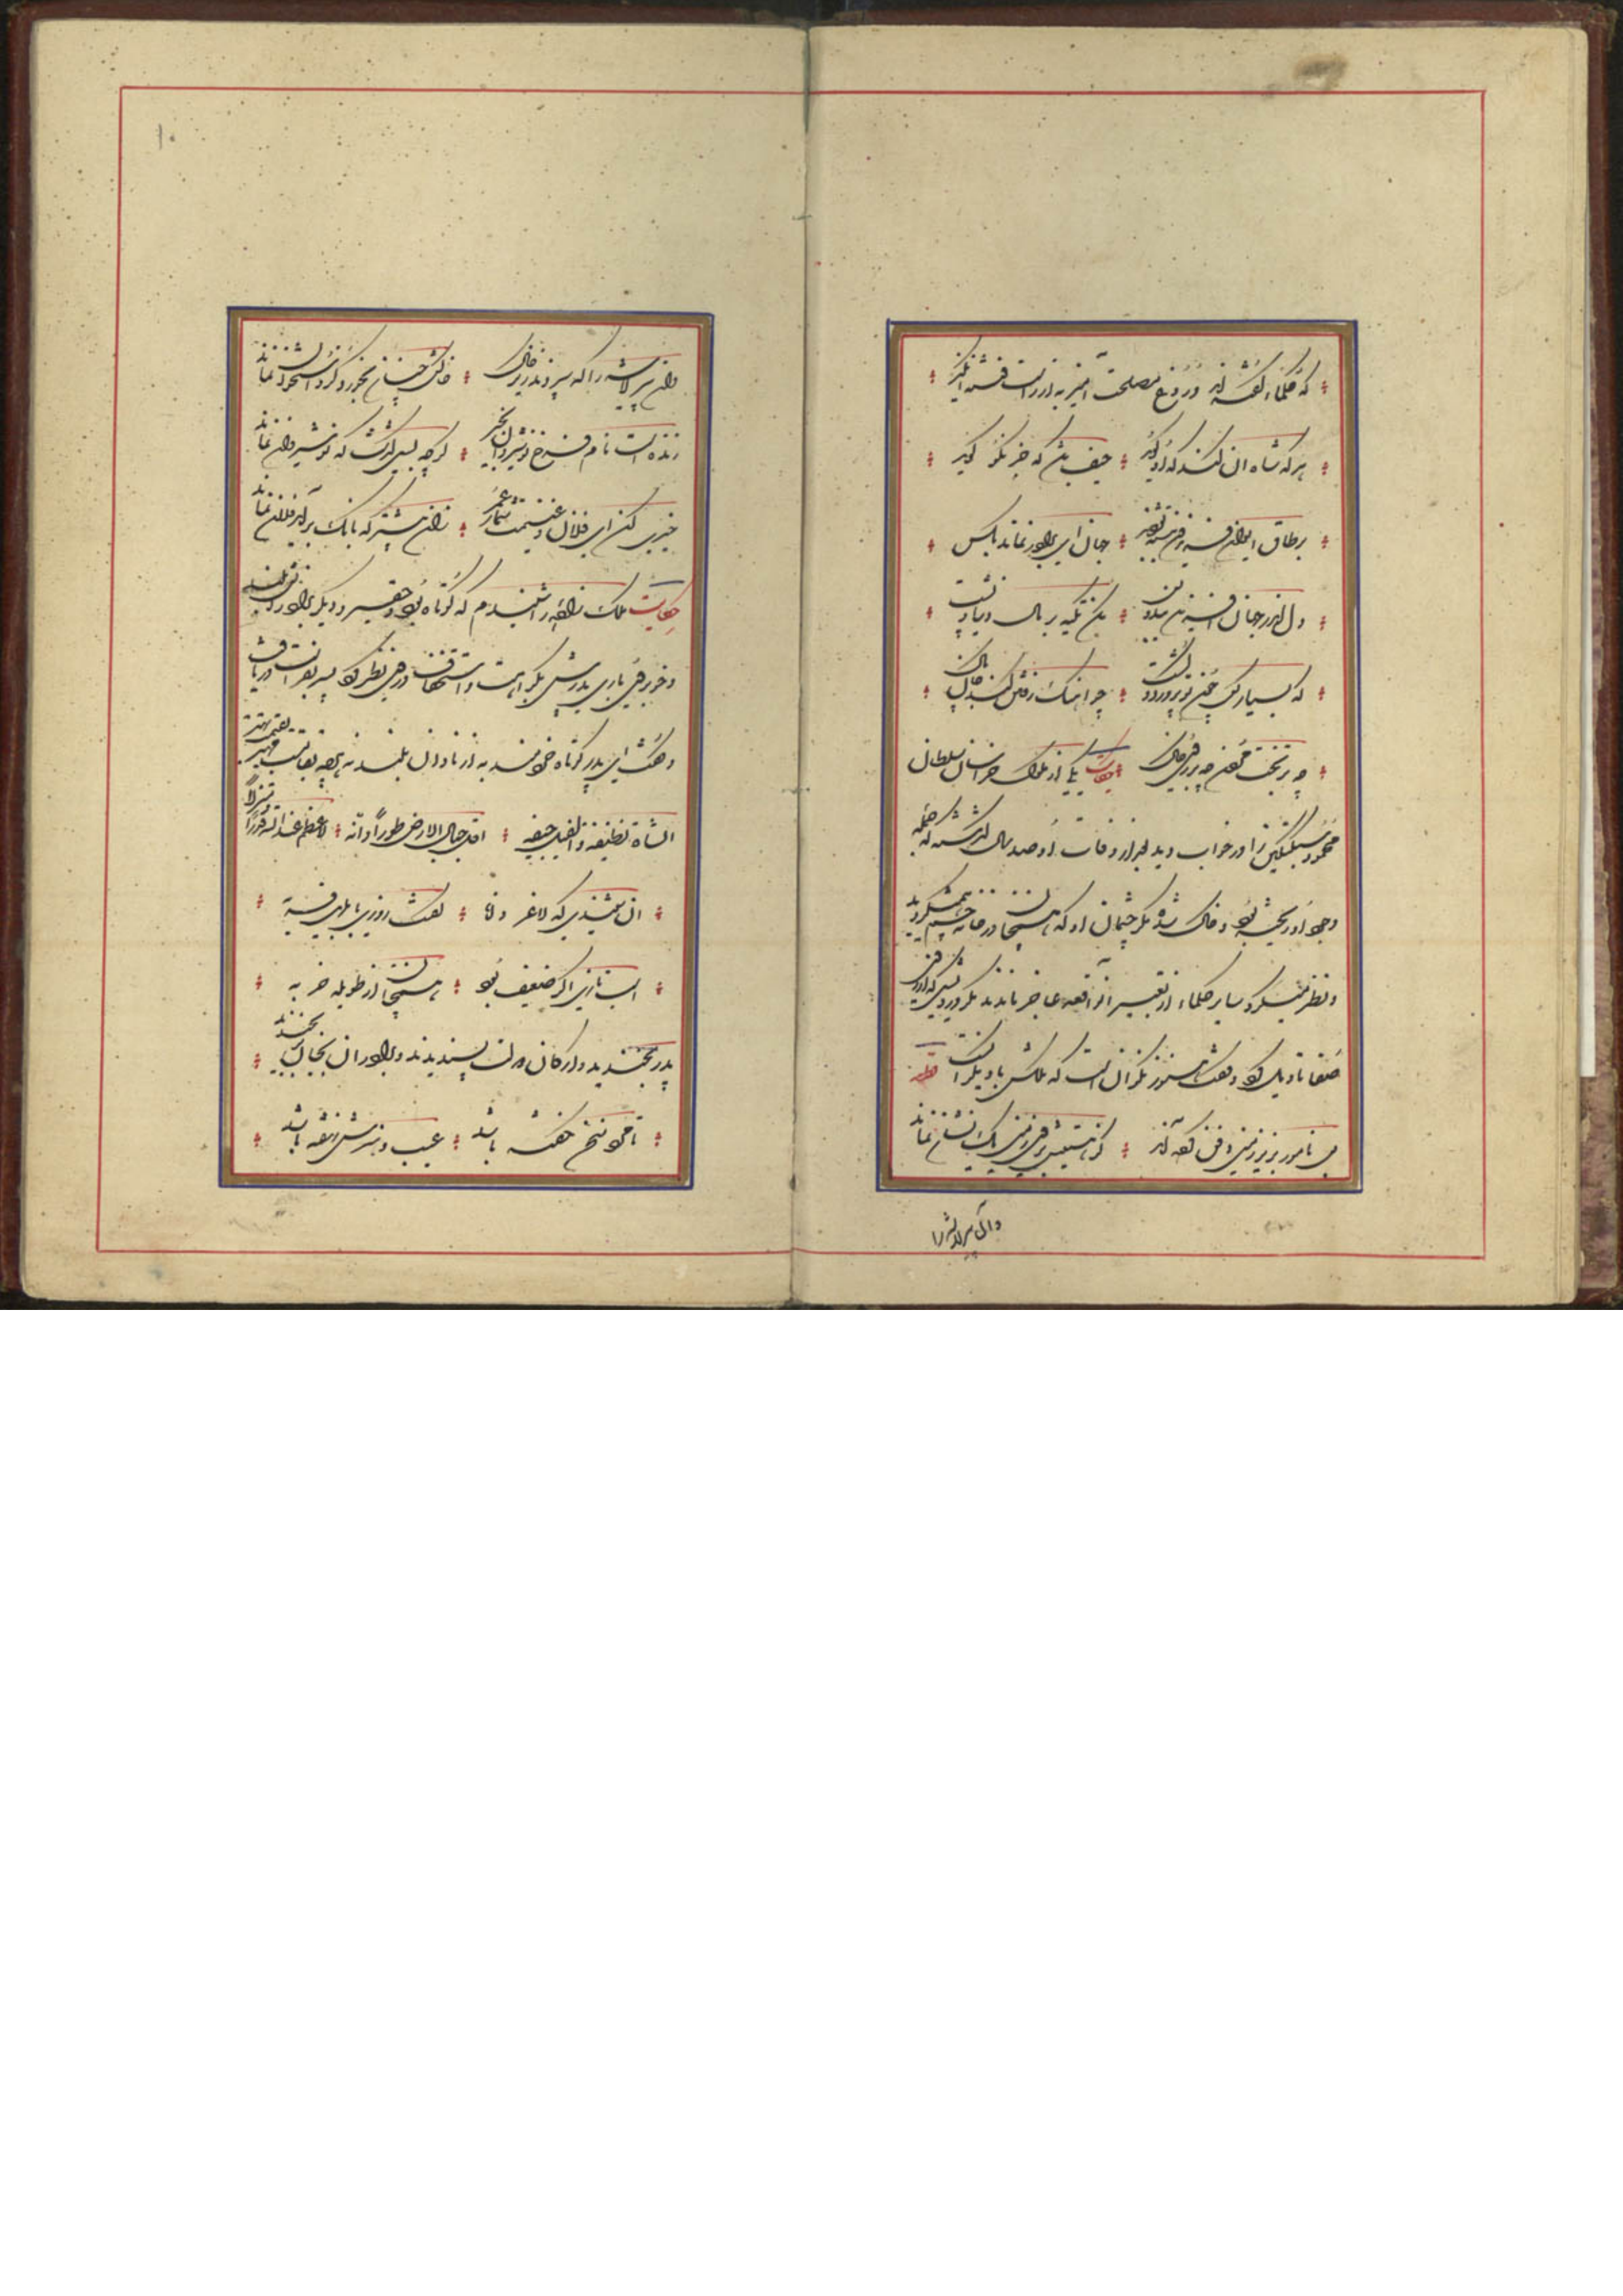 که حکما گفته اند دروغ مصلحت آمیز به از راست فتنه انگیز
هر که شاه آن کند که او گوید حیف باشد که جز نکو گوید
بر طاق ایوان فریدون نبشته بود جهان ای برادر نماند بکس
دل اندر جهان آفرین بند و بس مکن تکیه بر ملک دنیا و پشت
که بسیار کس چون تو پرورد و کشت چو آهنگ رفتن کند جان پاک
چه بر تخت مردن چه بر روی خاک حکایت یکی از ملوک خراسان سلطان
محمود سبکتکین را در خواب دید بعد از وفات او صد سال گذشته که جمله
وجود او ریخته بود و خاک شده مگر چشمان او که همچنان در خانه چشم همیگردید
و نظر میکرد سایر حکما از تعبیر آن واقعه عاجز ماندند مگر درویشی که او را در آن فن
تاویل کرد و گفت هنوز نگرانست که ملکش با دیگرانست قطعه
بس نامور بزیر زمین دفن کرده اند کز هستیش بروی زمین یک نشان نماند
وان پیر لاشه را
۱۰
وان پیر لاشه را که سپردند زیر خاک خاکش چنان بخورد کزو استخوان نماند
زنده است نام فرخ نوشیروان بخیر گرچه بسی گذشت که نوشیروان نماند
خیری کن ای فلان و غنیمت شمار عمر زان پیشتر که بانگ بر آید فلان نماند
حکایت ملک زاده را شنیدم که کوتاه بود و حقیر و دیگر برادران بلند
و خوبروی باری پدرش بکراهت و استحقار در وی نظر کرد پسر بفراست دریافت
و گفت ای پدر کوتاه خردمند به از نادان بلند نه هر چه بقامت مهتر بقیمت بهتر
الشاة نظیفة والفیل جیفة اقل جبال الارض طور وانه لاعظم عند الله قدرا ومنزلا
آن شنیدی که لاغر دانا گفت روزی بابلهی فربه
اسب تازی اگر ضعیف بود همچنان از طویله خر به
پدر بخندید و ارکان دولت بپسندیدند و برادران بجان برنجیدند
تا مرد سخن نگفته باشد عیب و هنرش نهفته باشد